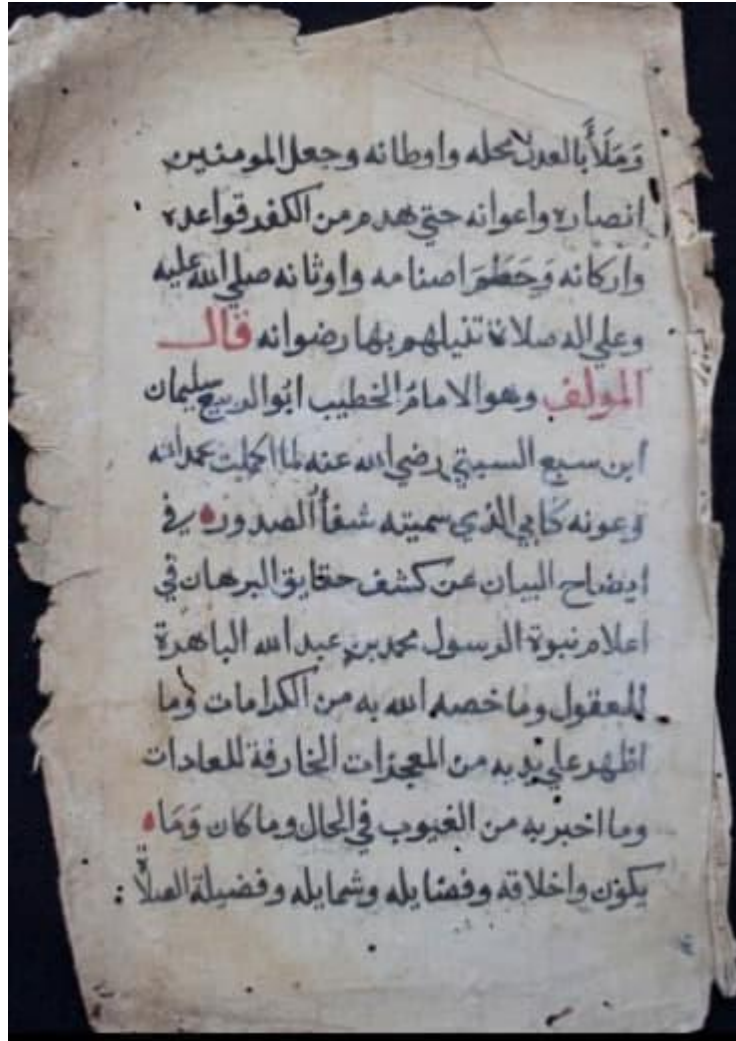 وَمَلَأَ بالعدل محله واوطانه وجعل المومنين
انصاره واعوانه حتي هدم من الكفر قواعده
واركانه وَحَطَمَ اصنامه واوثانه صلي الله عليه
وعلي اله صلاة تنيلهم بها رضوانه قال
المولف وهو الامامُ الخطيب ابُو الربيع سليمان
ابن سبع السبتي رضي الله عنه لما اكملت بحمد الله
وعونه كتابي الذي سميته شفأ الصدور ه في
ايضاح البيان عن كشف حقايق البرهان في
اعلام نبوة الرسول محمد بن عبد الله الباهرة
للمعقول وما خصه الله به من الكرامات وما
اظهر علي يديه من المعجزات الخارقة للعادات
وما اخبر به من الغيوب في الحال وما كان وَمَا ه
يكون واخلاقه وفضايله وشمايله وفضيلة الصلاة :